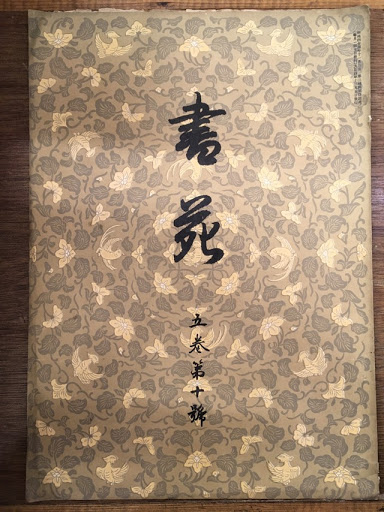 書苑
五卷第十號